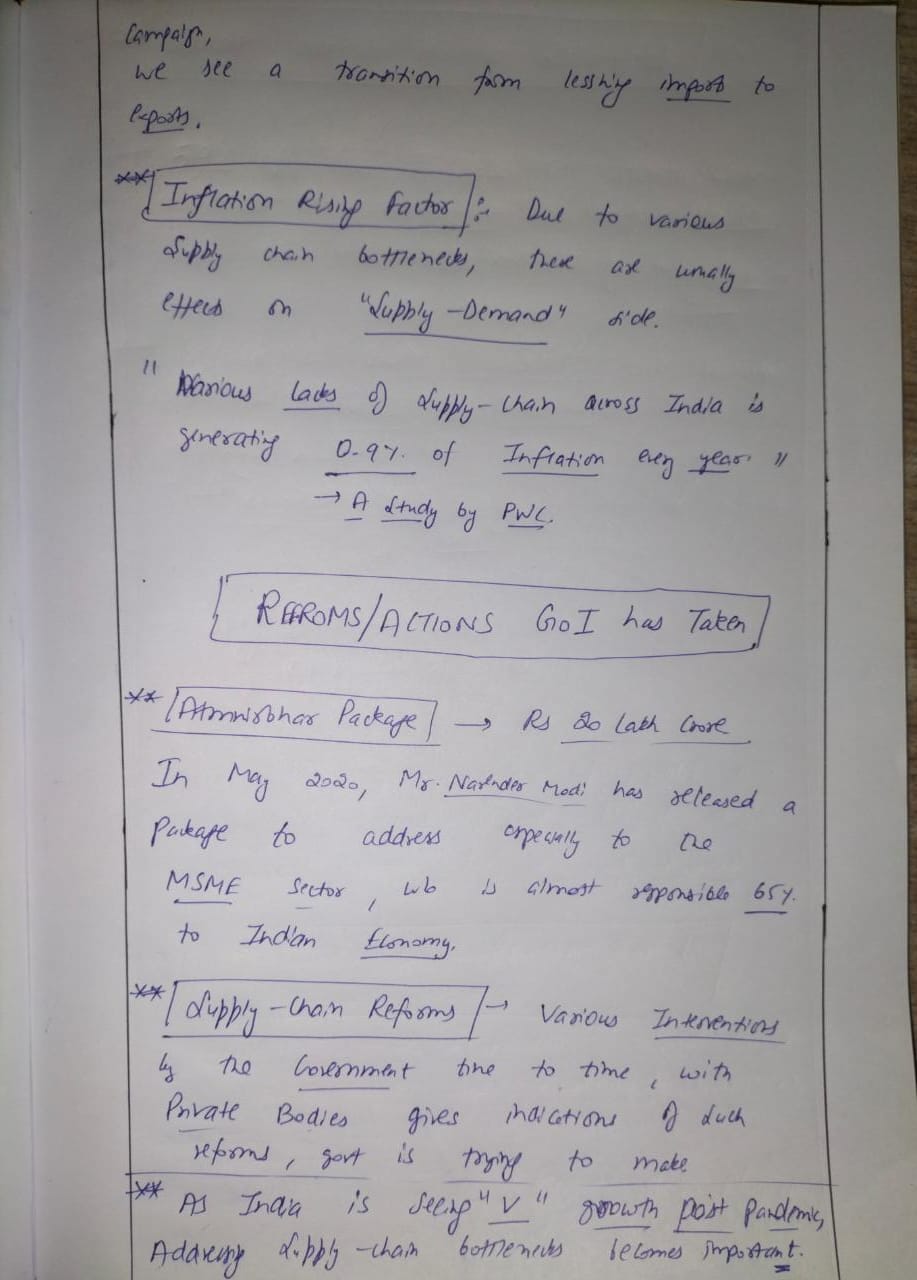 Campaign,
we see a transition from lessning import to
exports.
** Inflation Rising Factor :- Due to various
Supply chain bottlenecks, there are usually
effects on "Supply-Demand" side.
" Various lacks of Supply-chain across India is
generating 0.9% of Inflation every year. "
→ A Study by PWC.
REFROMS/ACTIONS GoI has Taken
** Atmnirbhar Package → Rs 20 Lakh Crore
In May 2020, Mr. Narender Modi has released a
Package to address especially to the
MSME Sector, w/o is almost responsible 65%
to Indian Economy.
** Supply-Chain Reforms → Various Interventions
by the Government time to time, with
Private Bodies gives indications of such
reforms, govt is trying to make
** As India is seeing "V" growth post pandemic,
Addressing supply-chain bottlenecks becomes important.